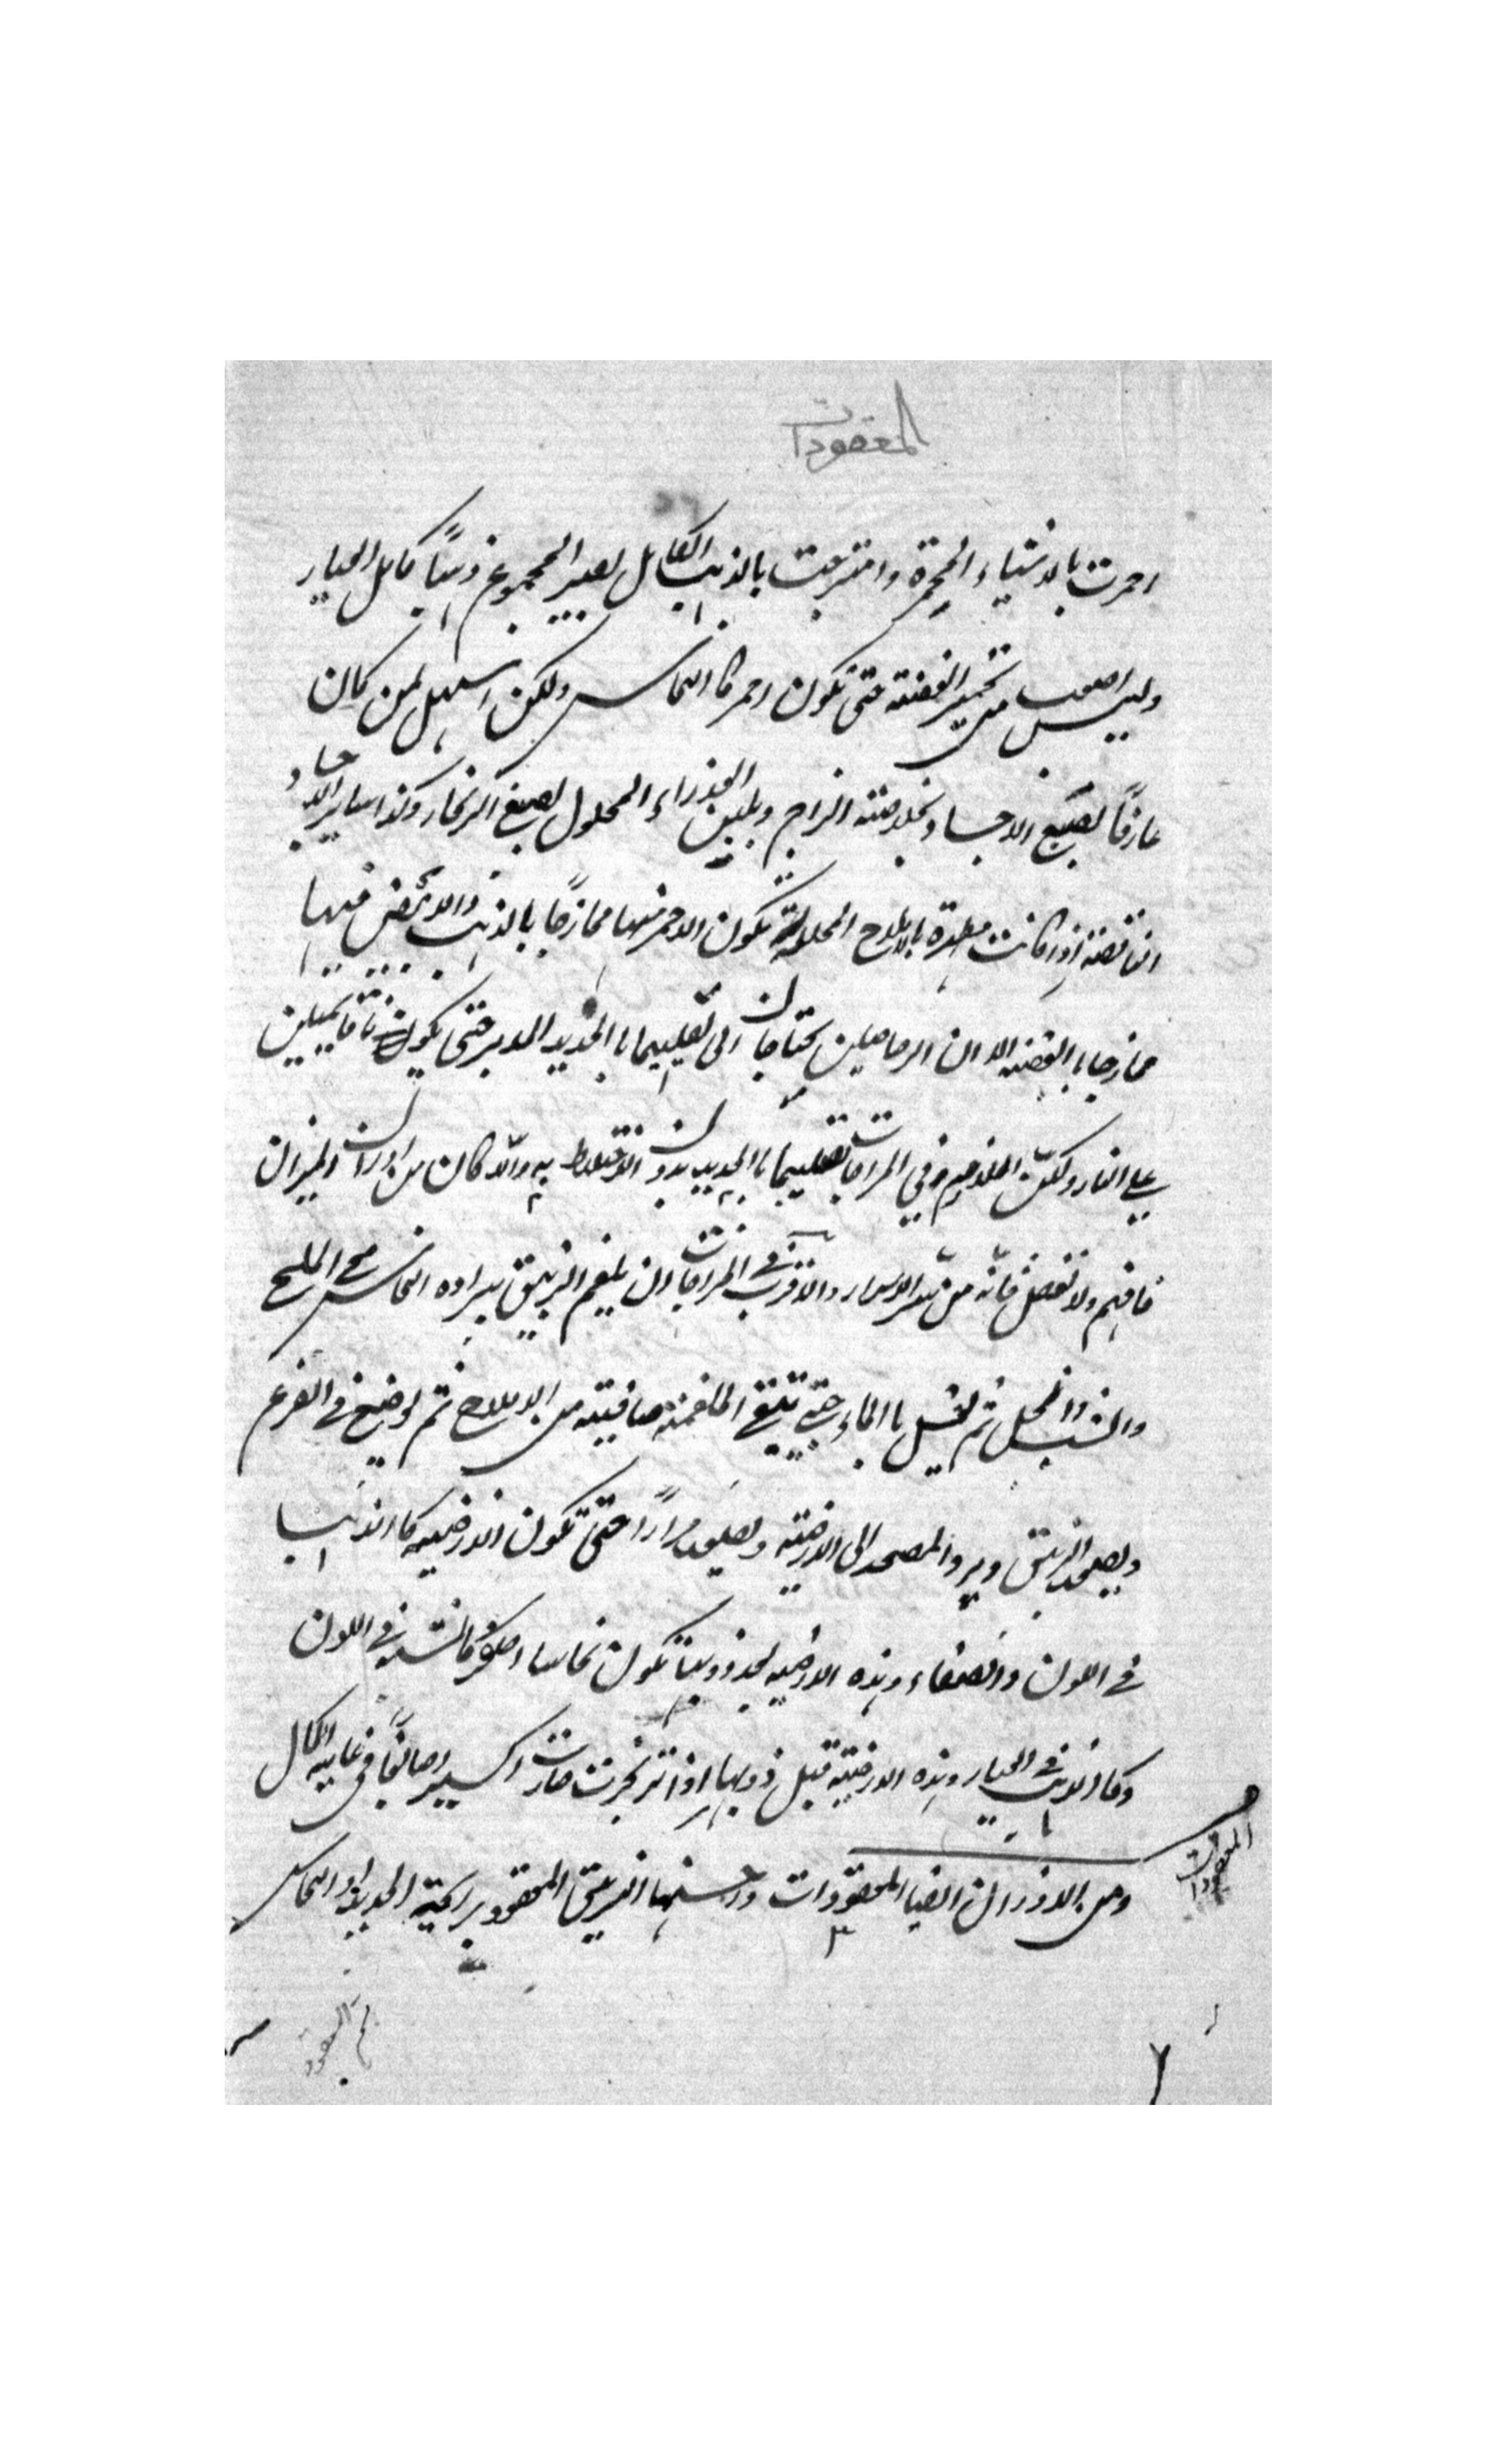 المعقودات
احمرت بالاشياء المحمرة وامتزجت بالذهب الكامل يصير المجموع ذهبًا كامل العيار
وليس اصعب من تحمير الفضة حتى تكون احمر كالنحاس ولكن اسهل لمن كان
عارفًا بصبغ الاجساد بخلاصته الزاج وبلبن العذراء المحلول بصبغ الزنجار وكذا ساير الاجساد
الناقصة اذا كانت مطهرة بالاملاح المحلولة يكون الاحمر منها ممازجًا بالذهب والابيض منها
ممازجا بالفضة الا ان الرصاصين يحتاجان الى تصليبهما بالحديد المدبر حتى يكونا قايمين
على النار ولكن الملاغيم وفي المزاجات تصليبهما بالحديد بدون الاختلاط به والا كان من اوزان الميزان
فافهم ولا تغفل فانه من سر الاسرار والاقرب في المزاجات ان يلغم الزيبق ببرادة النحاس مع الملح
والشب والخل ثم يغسل بالماء حتى تبقى الملغمة صافية من الاملاح ثم يوضع في القرع
ويصعد الزيبق ويرد المصعد الى الارضية ويصعد مرارًا حتى تكون الارضية كالذهب
في اللون والصفاء وهذه الارضية بعد ذوبها تكون نحاسا اصفر كالشبه في اللون
وكالذهب في العيار وهذه الارضية قبل ذوبها اذا تزنجرت صارت اكسيرا صابغًا في غاية الكمال
ومن الاوزان ايضا المعقودات واحسنها الزيبق المعقود برايحة الحديد او النحاس
المعقودات